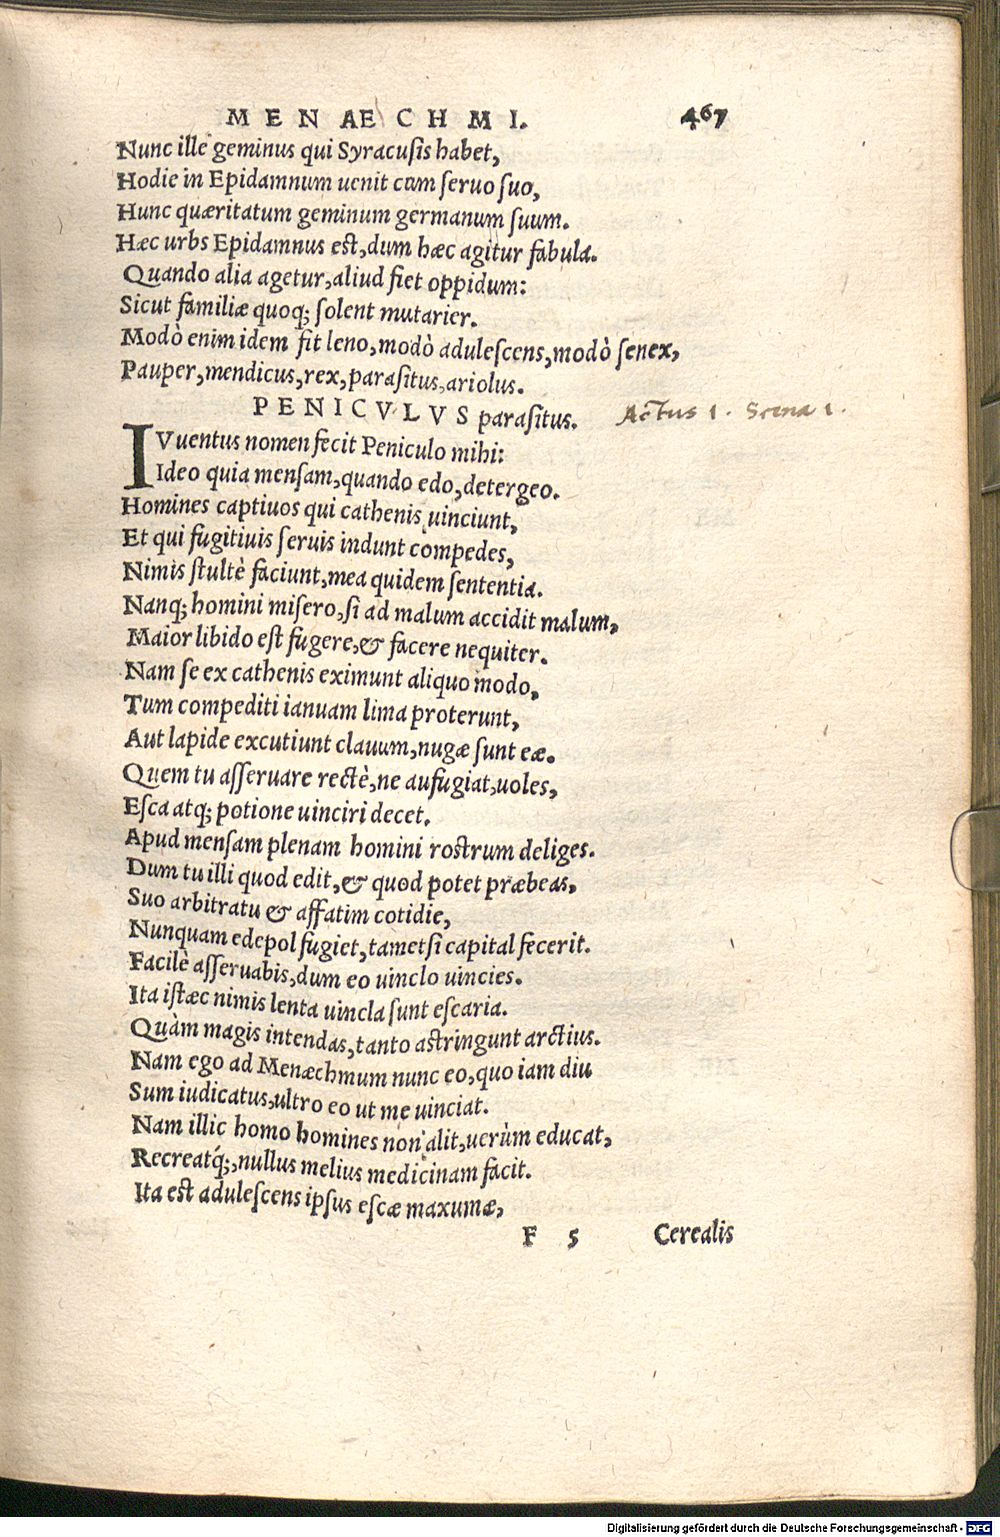 MENAECHMI. 467
Nunc ille geminus qui Syracusis habet,
Hodie in Epidamnum uenit cum seruo suo,
Hunc quæritatum geminum germanum suum.
Hæc urbs Epidamnus est, dum hæc agitur fabula.
Quando alia agetur, aliud fiet oppidum:
Sicut familiæ quoq; solent mutarier.
Modò enim idem fit leno, modò adulescens, modò senex,
Pauper, mendicus, rex, parasitus, ariolus.
PENICVLVS parasitus. Actus 1. Scena 1.
IVuentus nomen fecit Peniculo mihi:
Ideo quia mensam, quando edo, detergeo.
Homines captiuos qui cathenis uinciunt,
Et qui fugitiuis seruis indunt compedes,
Nimis stultè faciunt, mea quidem sententia.
Nanq; homini misero, si ad malum accidit malum,
Maior libido est fugere, & facere nequiter.
Nam se ex cathenis eximunt aliquo modo,
Tum compediti ianuam lima proterunt,
Aut lapide excutiunt clauum, nugæ sunt eæ.
Quem tu asseruare rectè, ne aufugiat, uoles,
Esca atq; potione uinciri decet.
Apud mensam plenam homini rostrum deliges.
Dum tu illi quod edit, & quod potet præbeas,
Suo arbitratu & affatim cotidie,
Nunquam edepol fugiet, tametsi capital fecerit.
Facilè asseruabis, dum eo uinclo uincies.
Ita istæc nimis lenta uincla sunt escaria.
Quàm magis intendas, tanto astringunt arctius.
Nam ego ad Menæchmum nunc eo, quo iam diu
Sum iudicatus, ultro eo ut me uinciat.
Nam illic homo homines non alit, uerùm educat,
Recreatq́;, nullus melius medicinam facit.
Ita est adulescens ipsus escæ maxumæ,
F 5 Cerealis
Digitalisierung gefördert durch die Deutsche Forschungsgemeinschaft - DFG